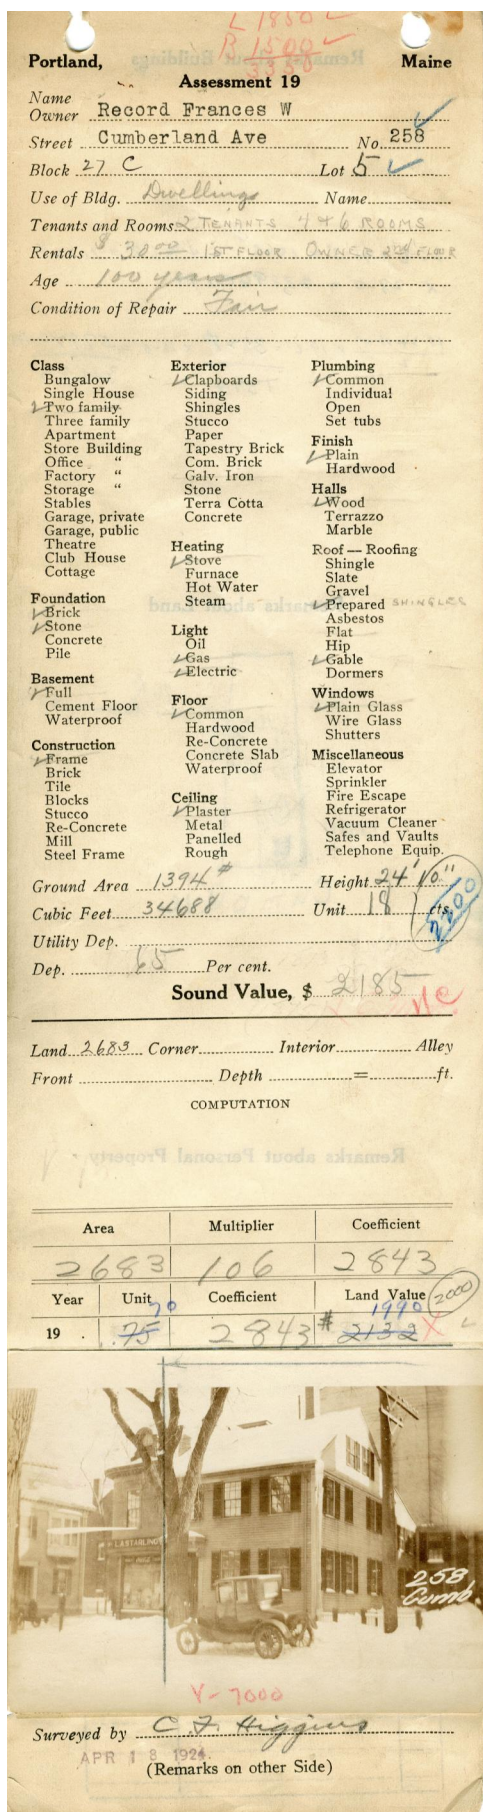 L 1850 ✓
B 1500 ✓
3350
Portland, Maine
Assessment 19
Name
Owner Record Frances W
Street Cumberland Ave No. 258
Block 27 C Lot 5
Use of Bldg. Dwellings Name
Tenants and Rooms 2 TENANTS 7 & 6 ROOMS
Rentals $ 30 00 1ST FLOOR OWNER 2nd FLOOR
Age 100 years
Condition of Repair Fair
Class
Bungalow
Single House
✓ Two family
Three family
Apartment
Store Building
Office "
Factory "
Storage "
Stables
Garage, private
Garage, public
Theatre
Club House
Cottage
Foundation
✓ Brick
✓ Stone
Concrete
Pile
Basement
✓ Full
Cement Floor
Waterproof
Construction
✓ Frame
Brick
Tile
Blocks
Stucco
Re-Concrete
Mill
Steel Frame
Exterior
✓ Clapboards
Siding
Shingles
Stucco
Paper
Tapestry Brick
Com. Brick
Galv. Iron
Stone
Terra Cotta
Concrete
Heating
✓ Stove
Furnace
Hot Water
Steam
Light
Oil
✓ Gas
✓ Electric
Floor
✓ Common
Hardwood
Re-Concrete
Concrete Slab
Waterproof
Ceiling
✓ Plaster
Metal
Panelled
Rough
Plumbing
✓ Common
Individual
Open
Set tubs
Finish
✓ Plain
Hardwood
Halls
✓ Wood
Terrazzo
Marble
Roof — Roofing
Shingle
Slate
Gravel
✓ Prepared SHINGLES
Asbestos
Flat
Hip
✓ Gable
Dormers
Windows
✓ Plain Glass
Wire Glass
Shutters
Miscellaneous
Elevator
Sprinkler
Fire Escape
Refrigerator
Vacuum Cleaner
Safes and Vaults
Telephone Equip.
Ground Area 1394 # Height 24' 10"
Cubic Feet 34688 Unit 18 cts. 2200
Utility Dep.
Dep. 65 Per cent.
Sound Value, $ 2185
N.C.
Land 2683 Corner Interior Alley
Front Depth = ft.
COMPUTATION
Area Multiplier Coefficient
2683 106 2843
Year Unit Coefficient Land Value 2000
70 1990
19 75 2843 # 2132 X
258
Cumb
V-7000
Surveyed by C. F. Higgins
APR 18 1924
(Remarks on other Side)